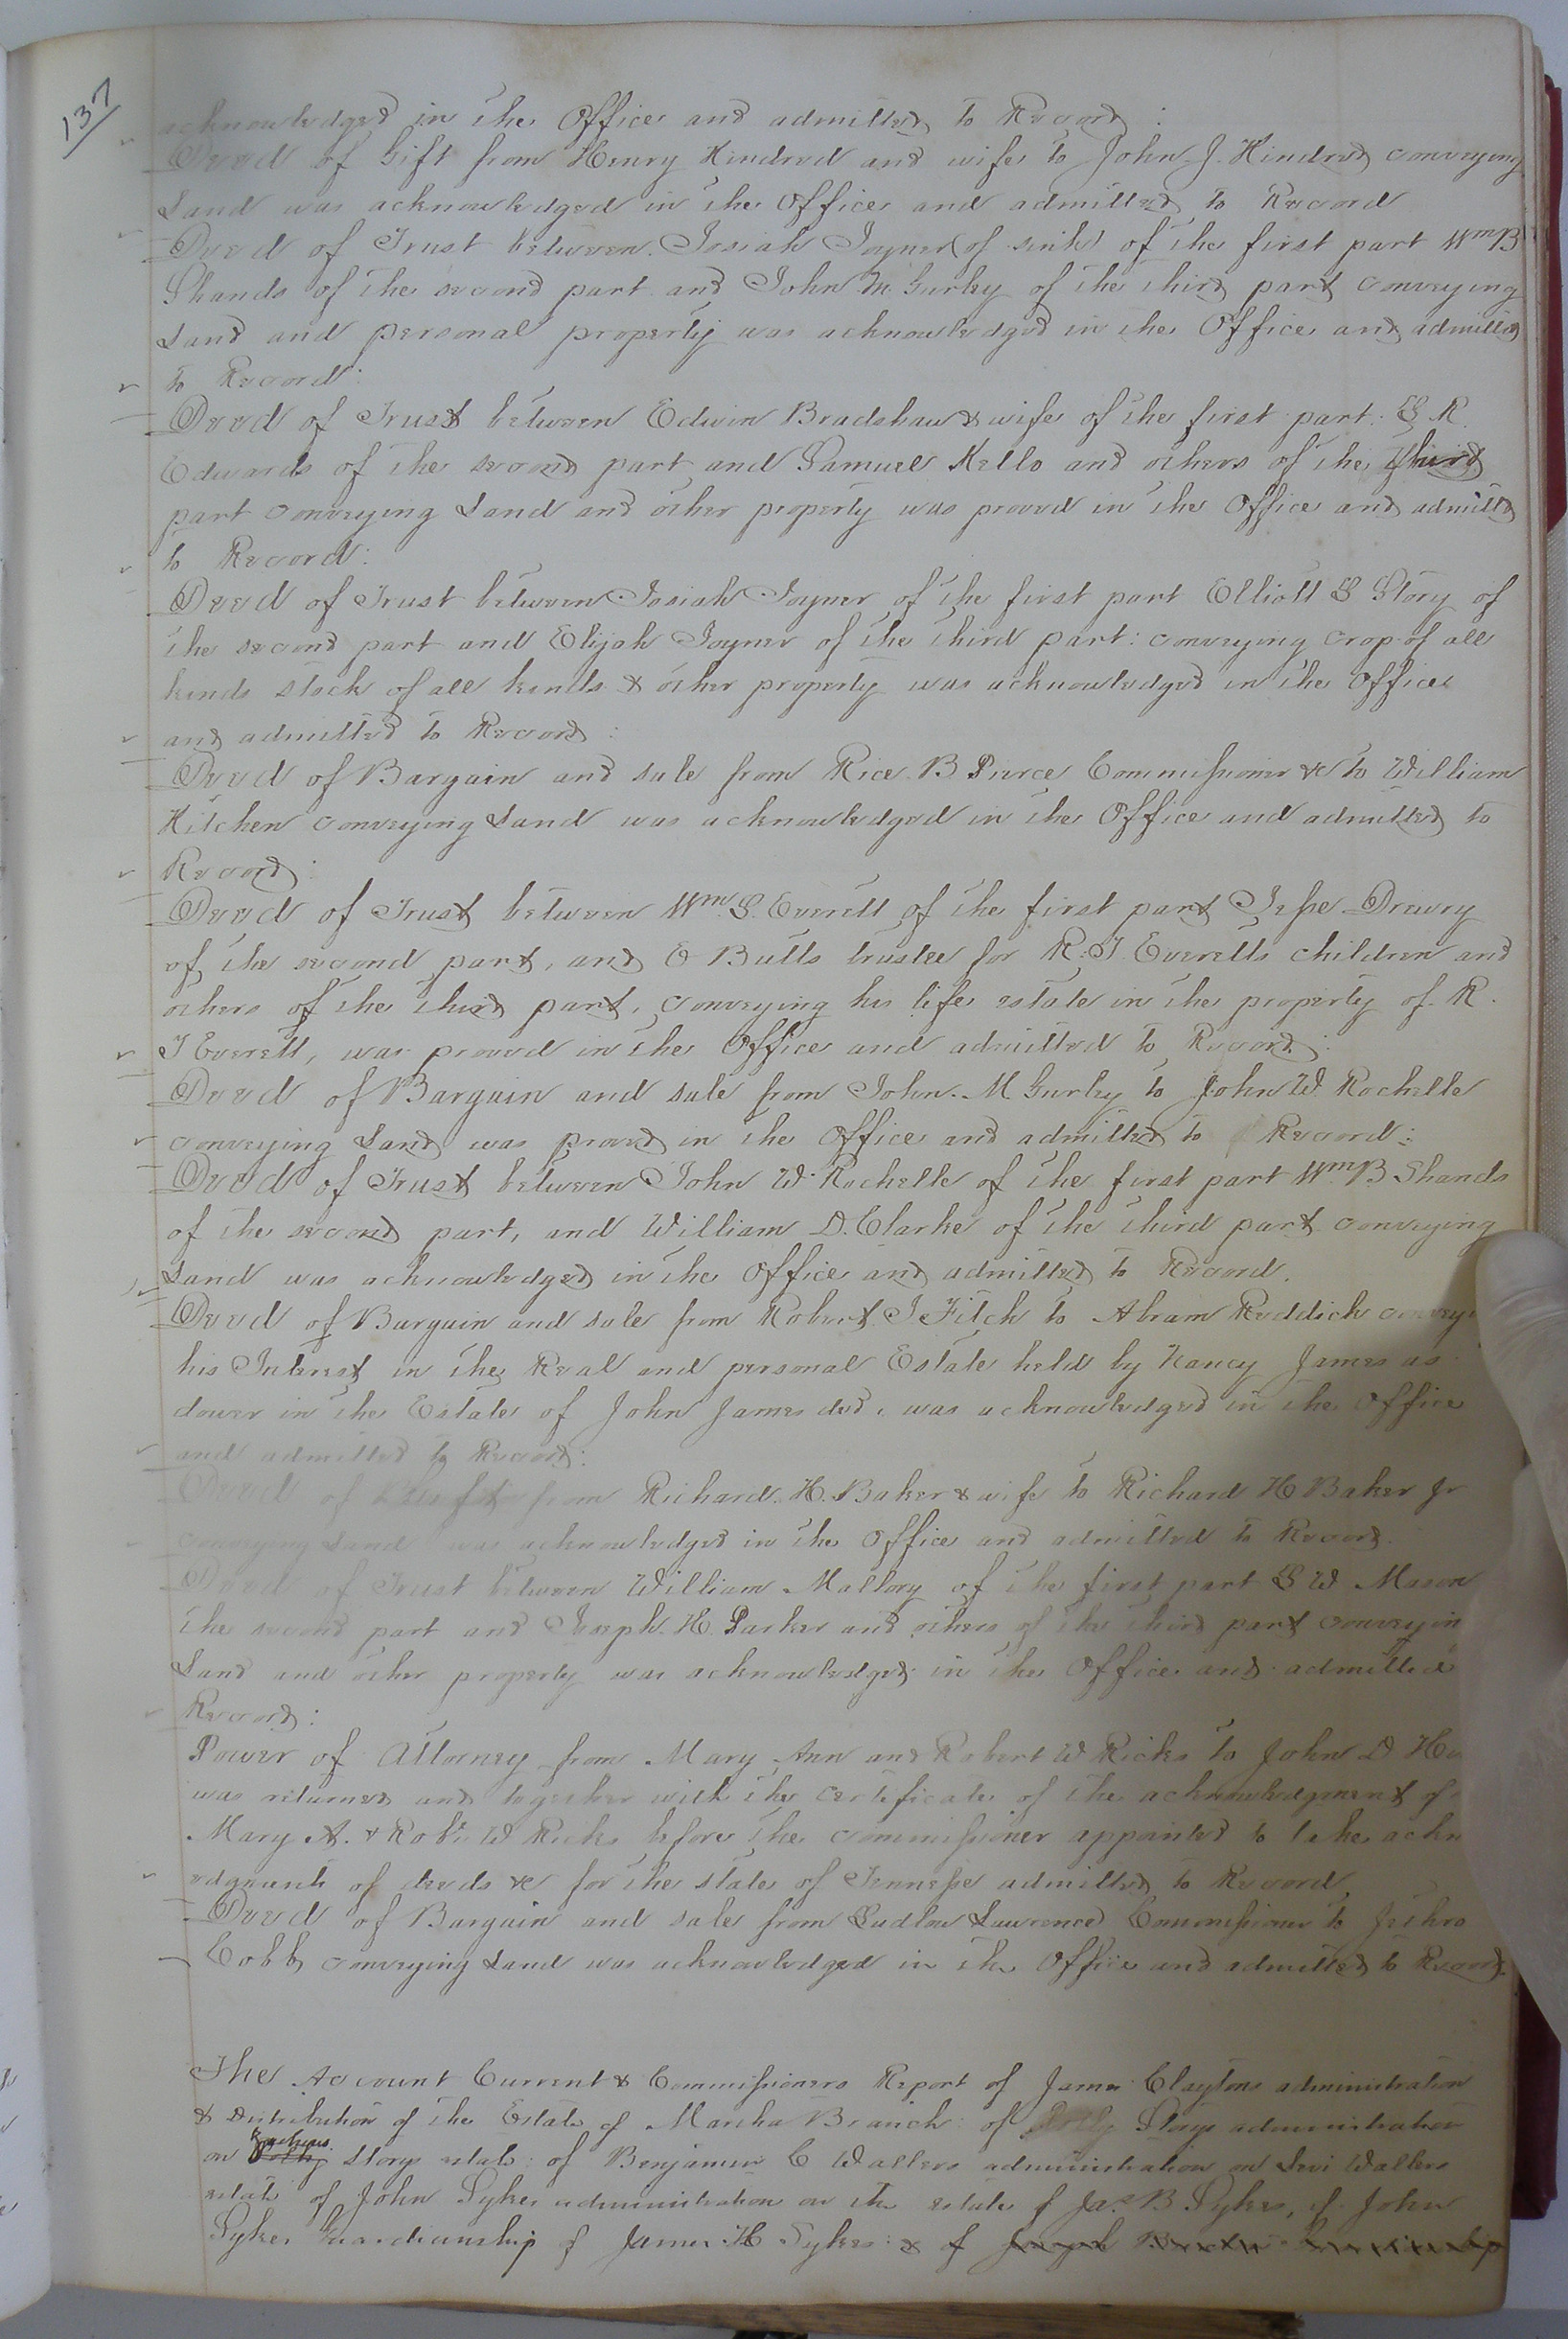 137
acknowledged in the Office and admitted to Record :
Deed of Gift from Henry Kindred and wife to John J. Kindred conveying
Land was acknowledged in the Office and admitted to Record
Deed of Trust between Josiah Joyner (of of the first part Wm B
Shands of the second part and John M Gurley of the third part conveying
Land and personal property was acknowledged in the Office and admitted
to Record :
Deed of Trust between Edwin Bradshaw & wife of the first part. S R.
Edwards of the second part and Samuel Kello and others of the third
part conveying Land and other property was proved in the Office and admitted
to Record :
Deed of Trust between Josiah Joyner of the first part Elliott S Story of
the second part and Elijah Joyner of the third part: conveying crop of all
kinds stock of all kinds & other property was acknowledged in the Office
and admitted to Record :
Deed of Bargain and sale from Rice B Pierce Commissioner &c to William
Kitchen conveying Land was acknowledged in the Office and admitted to
Record :
Deed of Trust between Wm. S. Everett of the first part Jesse Drewry
of the second part, and E Butts trustee for R. J. Everetts children and
others of the third part, conveying his life estate in the property of R.
J Everett, was proved in the Office and admitted to Record :
Deed of Bargain and sale from John. M Gurley to John W. Rochelle
conveying Land was proved in the Office and admitted to Record :
Deed of Trust between John W. Rochelle of the first part Wm. B. Shands
of the second part, and William D. Clarke of the third part conveying
Land was acknowledged in the Office and admitted to Record.
Deed of Bargain and sale from Robert J Fitch to Abram Reddick
his Interest in the Real and personal Estate held by Nancy James as
dower in the Estate of John James decd. was acknowledged in the Office
and admitted to Record :
Deed of from Richard. H. Baker & wife to Richard H Baker Jr
conveying Land was acknowledged in the Office and admitted to Record.
Deed of Trust between William Mallory of the first part S W Mason
the second part and Joseph. H. Parker and others of the third part conveyin
Land and other property was acknowledged in the Office and admitted
Record :
Power of Attorney from Mary Ann and Robert W Ricks to John D
was returned and together with the certificate of the acknowledgment of
Mary A. & Robt. W Ricks before the commissioner appointed to take ackn
edgments of deeds &c for the state of Tennessee admitted to Record
Deed of Bargain and sale from Ludlow Lawrence Commissioner to Jethro
Cobb conveying Land was acknowledged in the Office and admitted to Record.
The Account Current & Commissioners Report of James Claytons administration
& distribution of the Estate of Martha Branch : of Story administration
on Storys estate : of Benjamin C Wallers administration on Levi Wallers
estate of John Sykes administration on the estate of Jas. B. Sykes, of John
Sykes Guardianship of James H Sykes : & of Joseph